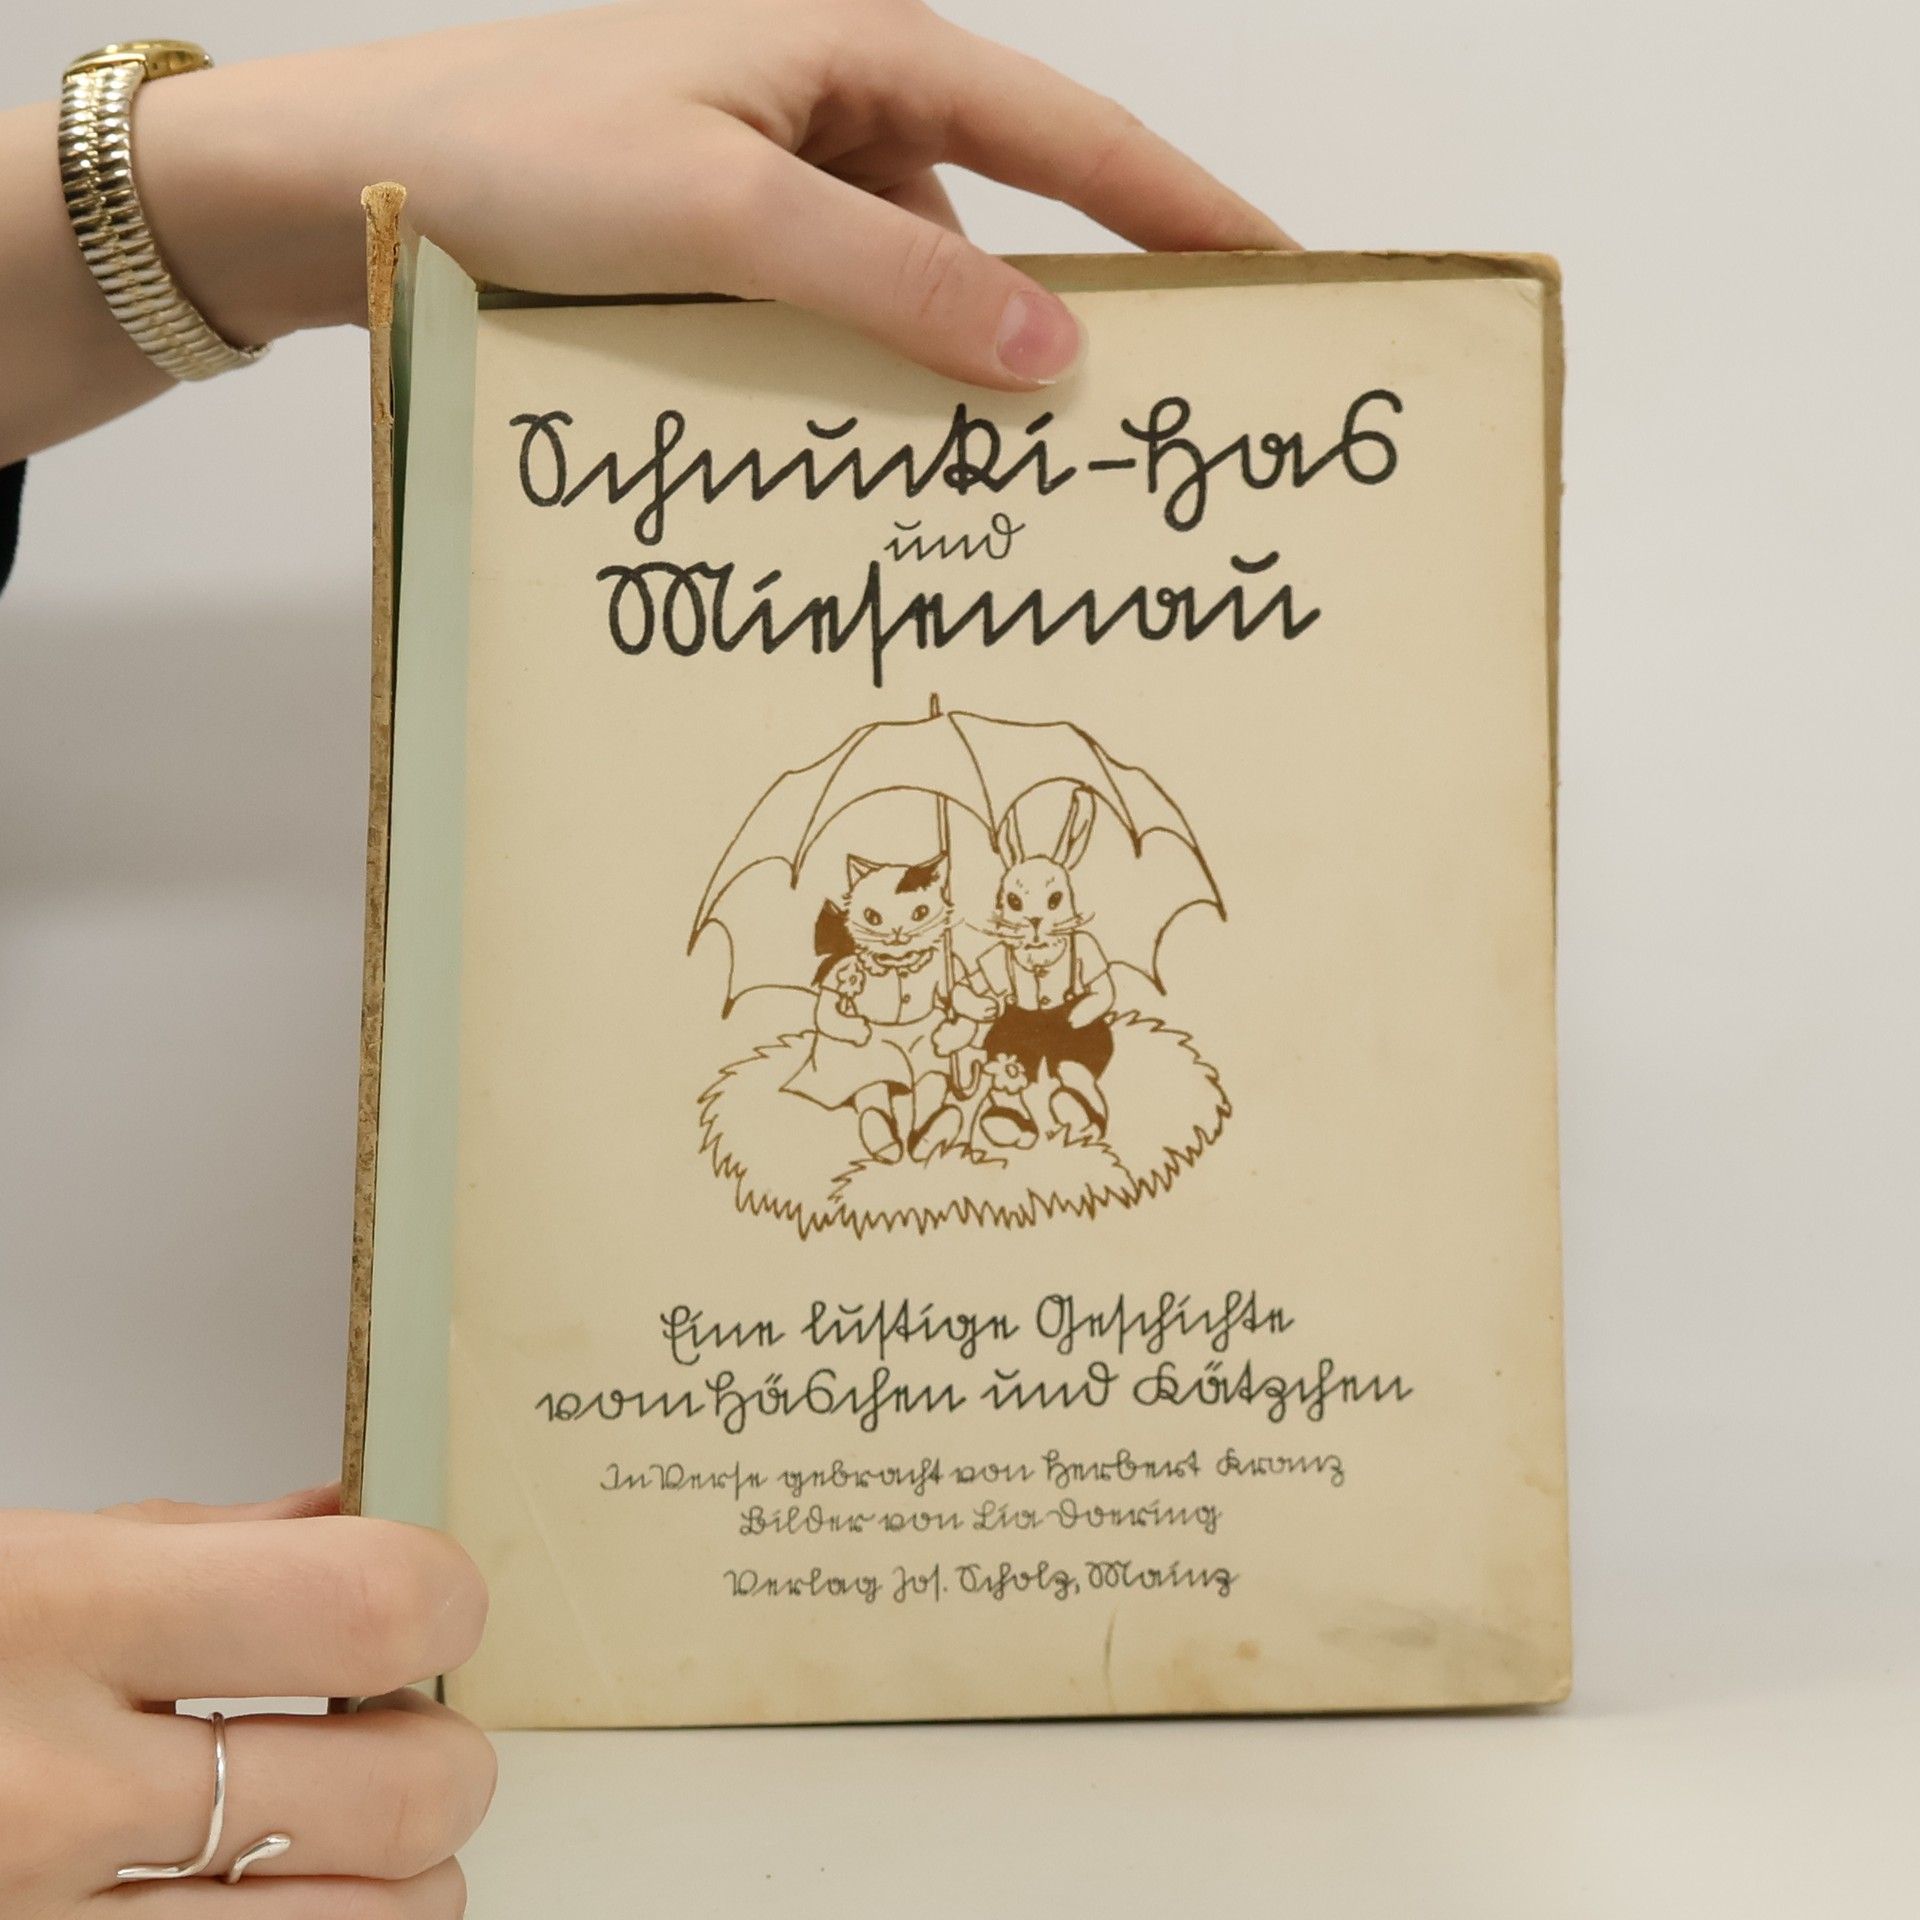 Schnucki-Has
und
Miesemau
Eine lustige Geschichte
vom Häschen und Kätzchen
In Verse gebracht von Herbert Kranz
Bilder von Lia Doering
Verlag Jos. Scholz, Mainz